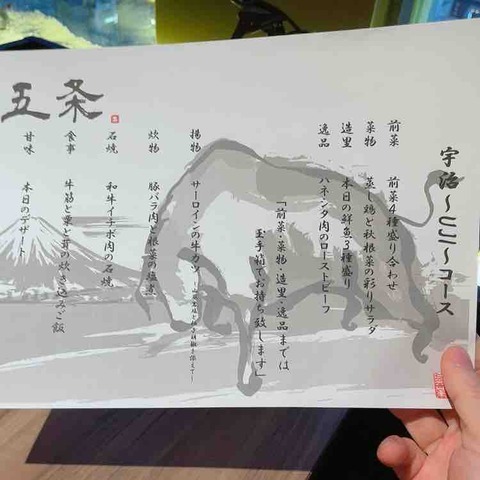 宇治～UJI～コース
前菜 前菜4種盛り合わせ
菜物 蒸し鶏と秋根菜の彩りサラダ
造里 本日の鮮魚3種盛り
逸品 ハネシタ肉のローストビーフ
「前菜・菜物・造里・逸品までは
玉手箱でお持ち致します」
揚物 サーロインの牛カツ
炊物 豚バラ肉と根菜の塩煮
石焼 和牛イチボ肉の石焼
食事 牛筋と栗と茸の炊き込みご飯
甘味 本日のデザート
五条